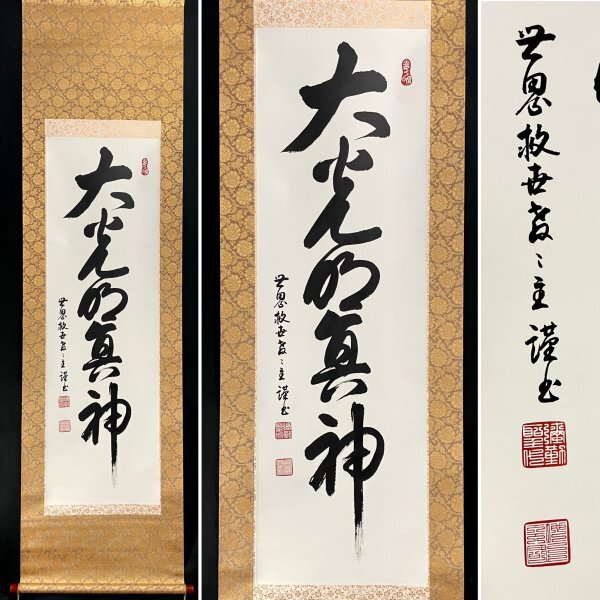 大光明真神
世界救世教々主謹書
大光明真神
世界救世教々主謹書
世界救世教々主謹書